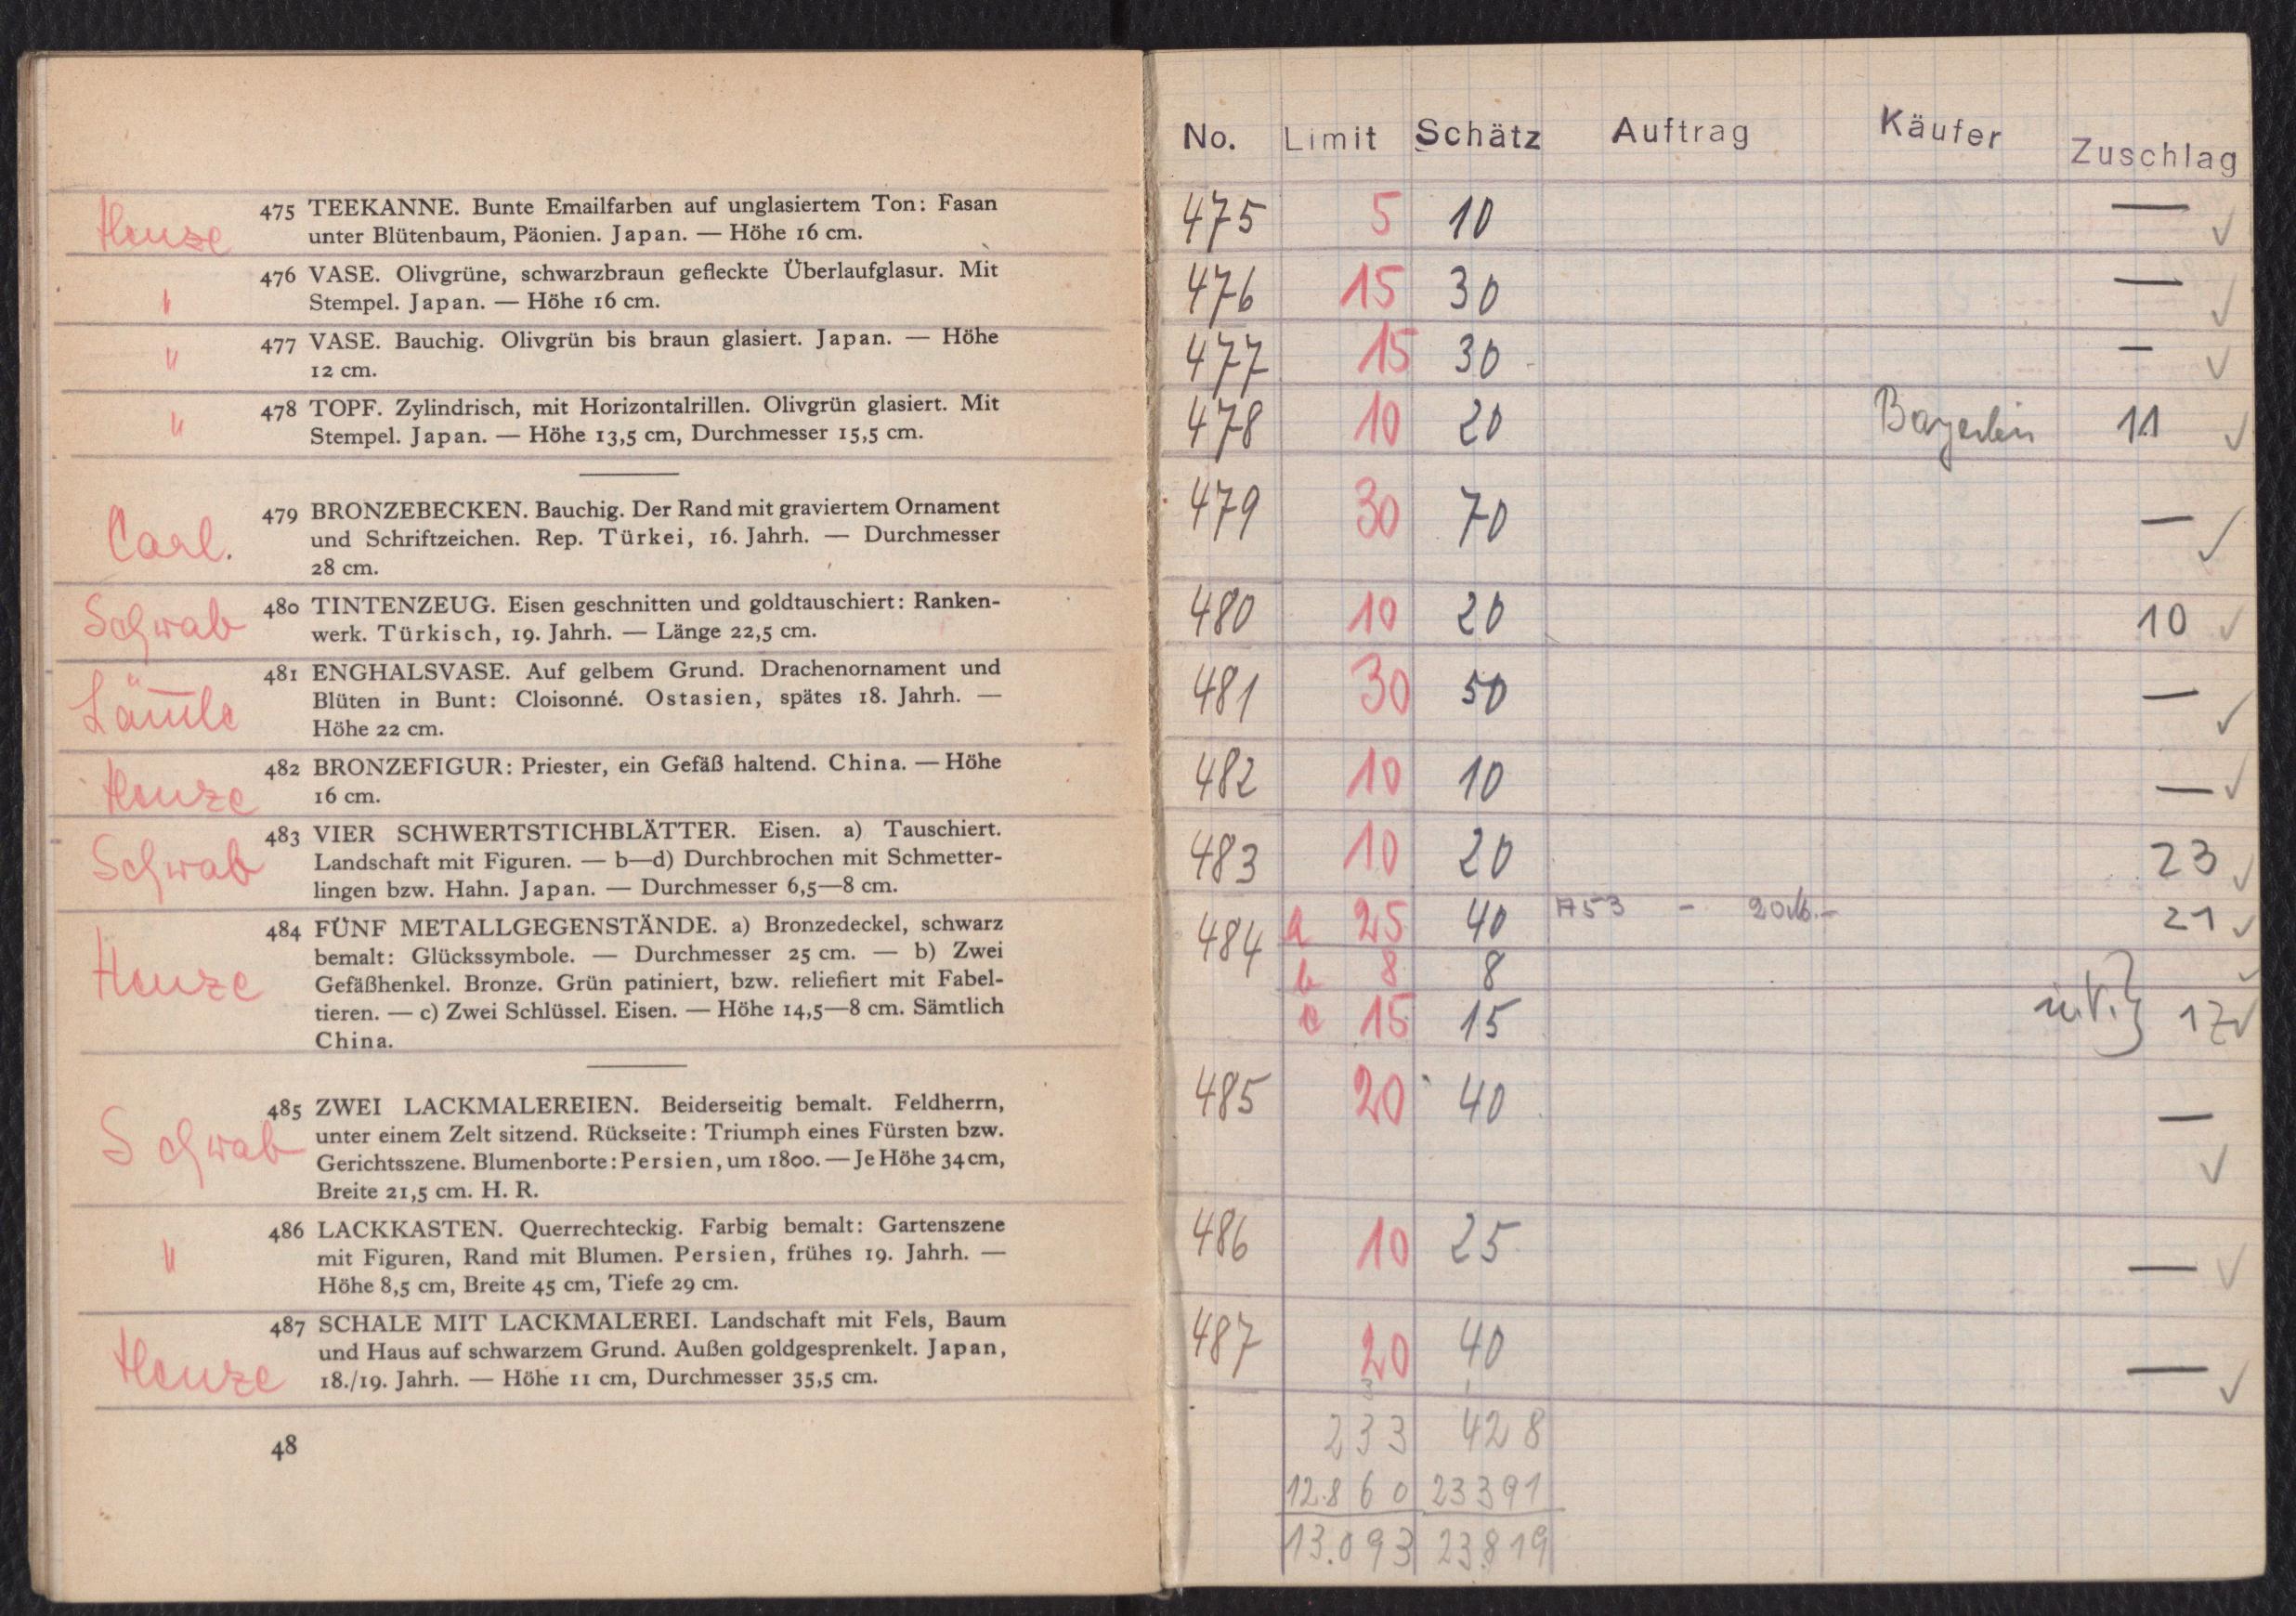 Henze
475 TEEKANNE. Bunte Emailfarben auf unglasiertem Ton: Fasan
unter Blütenbaum, Päonien. Japan. — Höhe 16 cm.
"
476 VASE. Olivgrüne, schwarzbraun gefleckte Überlaufglasur. Mit
Stempel. Japan. — Höhe 16 cm.
"
477 VASE. Bauchig. Olivgrün bis braun glasiert. Japan. — Höhe
12 cm.
"
478 TOPF. Zylindrisch, mit Horizontalrillen. Olivgrün glasiert. Mit
Stempel. Japan. — Höhe 13,5 cm, Durchmesser 15,5 cm.
Carl.
479 BRONZEBECKEN. Bauchig. Der Rand mit graviertem Ornament
und Schriftzeichen. Rep. Türkei, 16. Jahrh. — Durchmesser
28 cm.
Schwab
480 TINTENZEUG. Eisen geschnitten und goldtauschiert: Ranken-
werk. Türkisch, 19. Jahrh. — Länge 22,5 cm.
481 ENGHALSVASE. Auf gelbem Grund. Drachenornament und
Blüten in Bunt: Cloisonné. Ostasien, spätes 18. Jahrh. —
Höhe 22 cm.
Henze
482 BRONZEFIGUR: Priester, ein Gefäß haltend. China. — Höhe
16 cm.
Schwab
483 VIER SCHWERTSTICHBLÄTTER. Eisen. a) Tauschiert.
Landschaft mit Figuren. — b—d) Durchbrochen mit Schmetter-
lingen bzw. Hahn. Japan. — Durchmesser 6,5—8 cm.
Henze
484 FÜNF METALLGEGENSTÄNDE. a) Bronzedeckel, schwarz
bemalt: Glückssymbole. — Durchmesser 25 cm. — b) Zwei
Gefäßhenkel. Bronze. Grün patiniert, bzw. reliefiert mit Fabel-
tieren. — c) Zwei Schlüssel. Eisen. — Höhe 14,5—8 cm. Sämtlich
China.
Schwab
485 ZWEI LACKMALEREIEN. Beiderseitig bemalt. Feldherrn,
unter einem Zelt sitzend. Rückseite: Triumph eines Fürsten bzw.
Gerichtsszene. Blumenborte: Persien, um 1800. — Je Höhe 34 cm,
Breite 21,5 cm. H. R.
"
486 LACKKASTEN. Querrechteckig. Farbig bemalt: Gartenszene
mit Figuren, Rand mit Blumen. Persien, frühes 19. Jahrh. —
Höhe 8,5 cm, Breite 45 cm, Tiefe 29 cm.
Henze
487 SCHALE MIT LACKMALEREI. Landschaft mit Fels, Baum
und Haus auf schwarzem Grund. Außen goldgesprenkelt. Japan,
18./19. Jahrh. — Höhe 11 cm, Durchmesser 35,5 cm.
48
No. Limit Schätz Auftrag Käufer Zuschlag
475 5 10 — ✓
476 15 30 — ✓
477 15 30 — ✓
478 10 20 Bayerlein 11 ✓
479 30 70 — ✓
480 10 20 10 ✓
481 30 50 — ✓
482 10 10 — ✓
483 10 20 23 ✓
484 a 25 40 A53 - 20 M.- 21 ✓
b 8 8 ✓
c 15 15 17 ✓
485 20 40 — ✓
486 10 25 — ✓
487 20 40 — ✓
233 428
12.860 23391
13.093 23.819